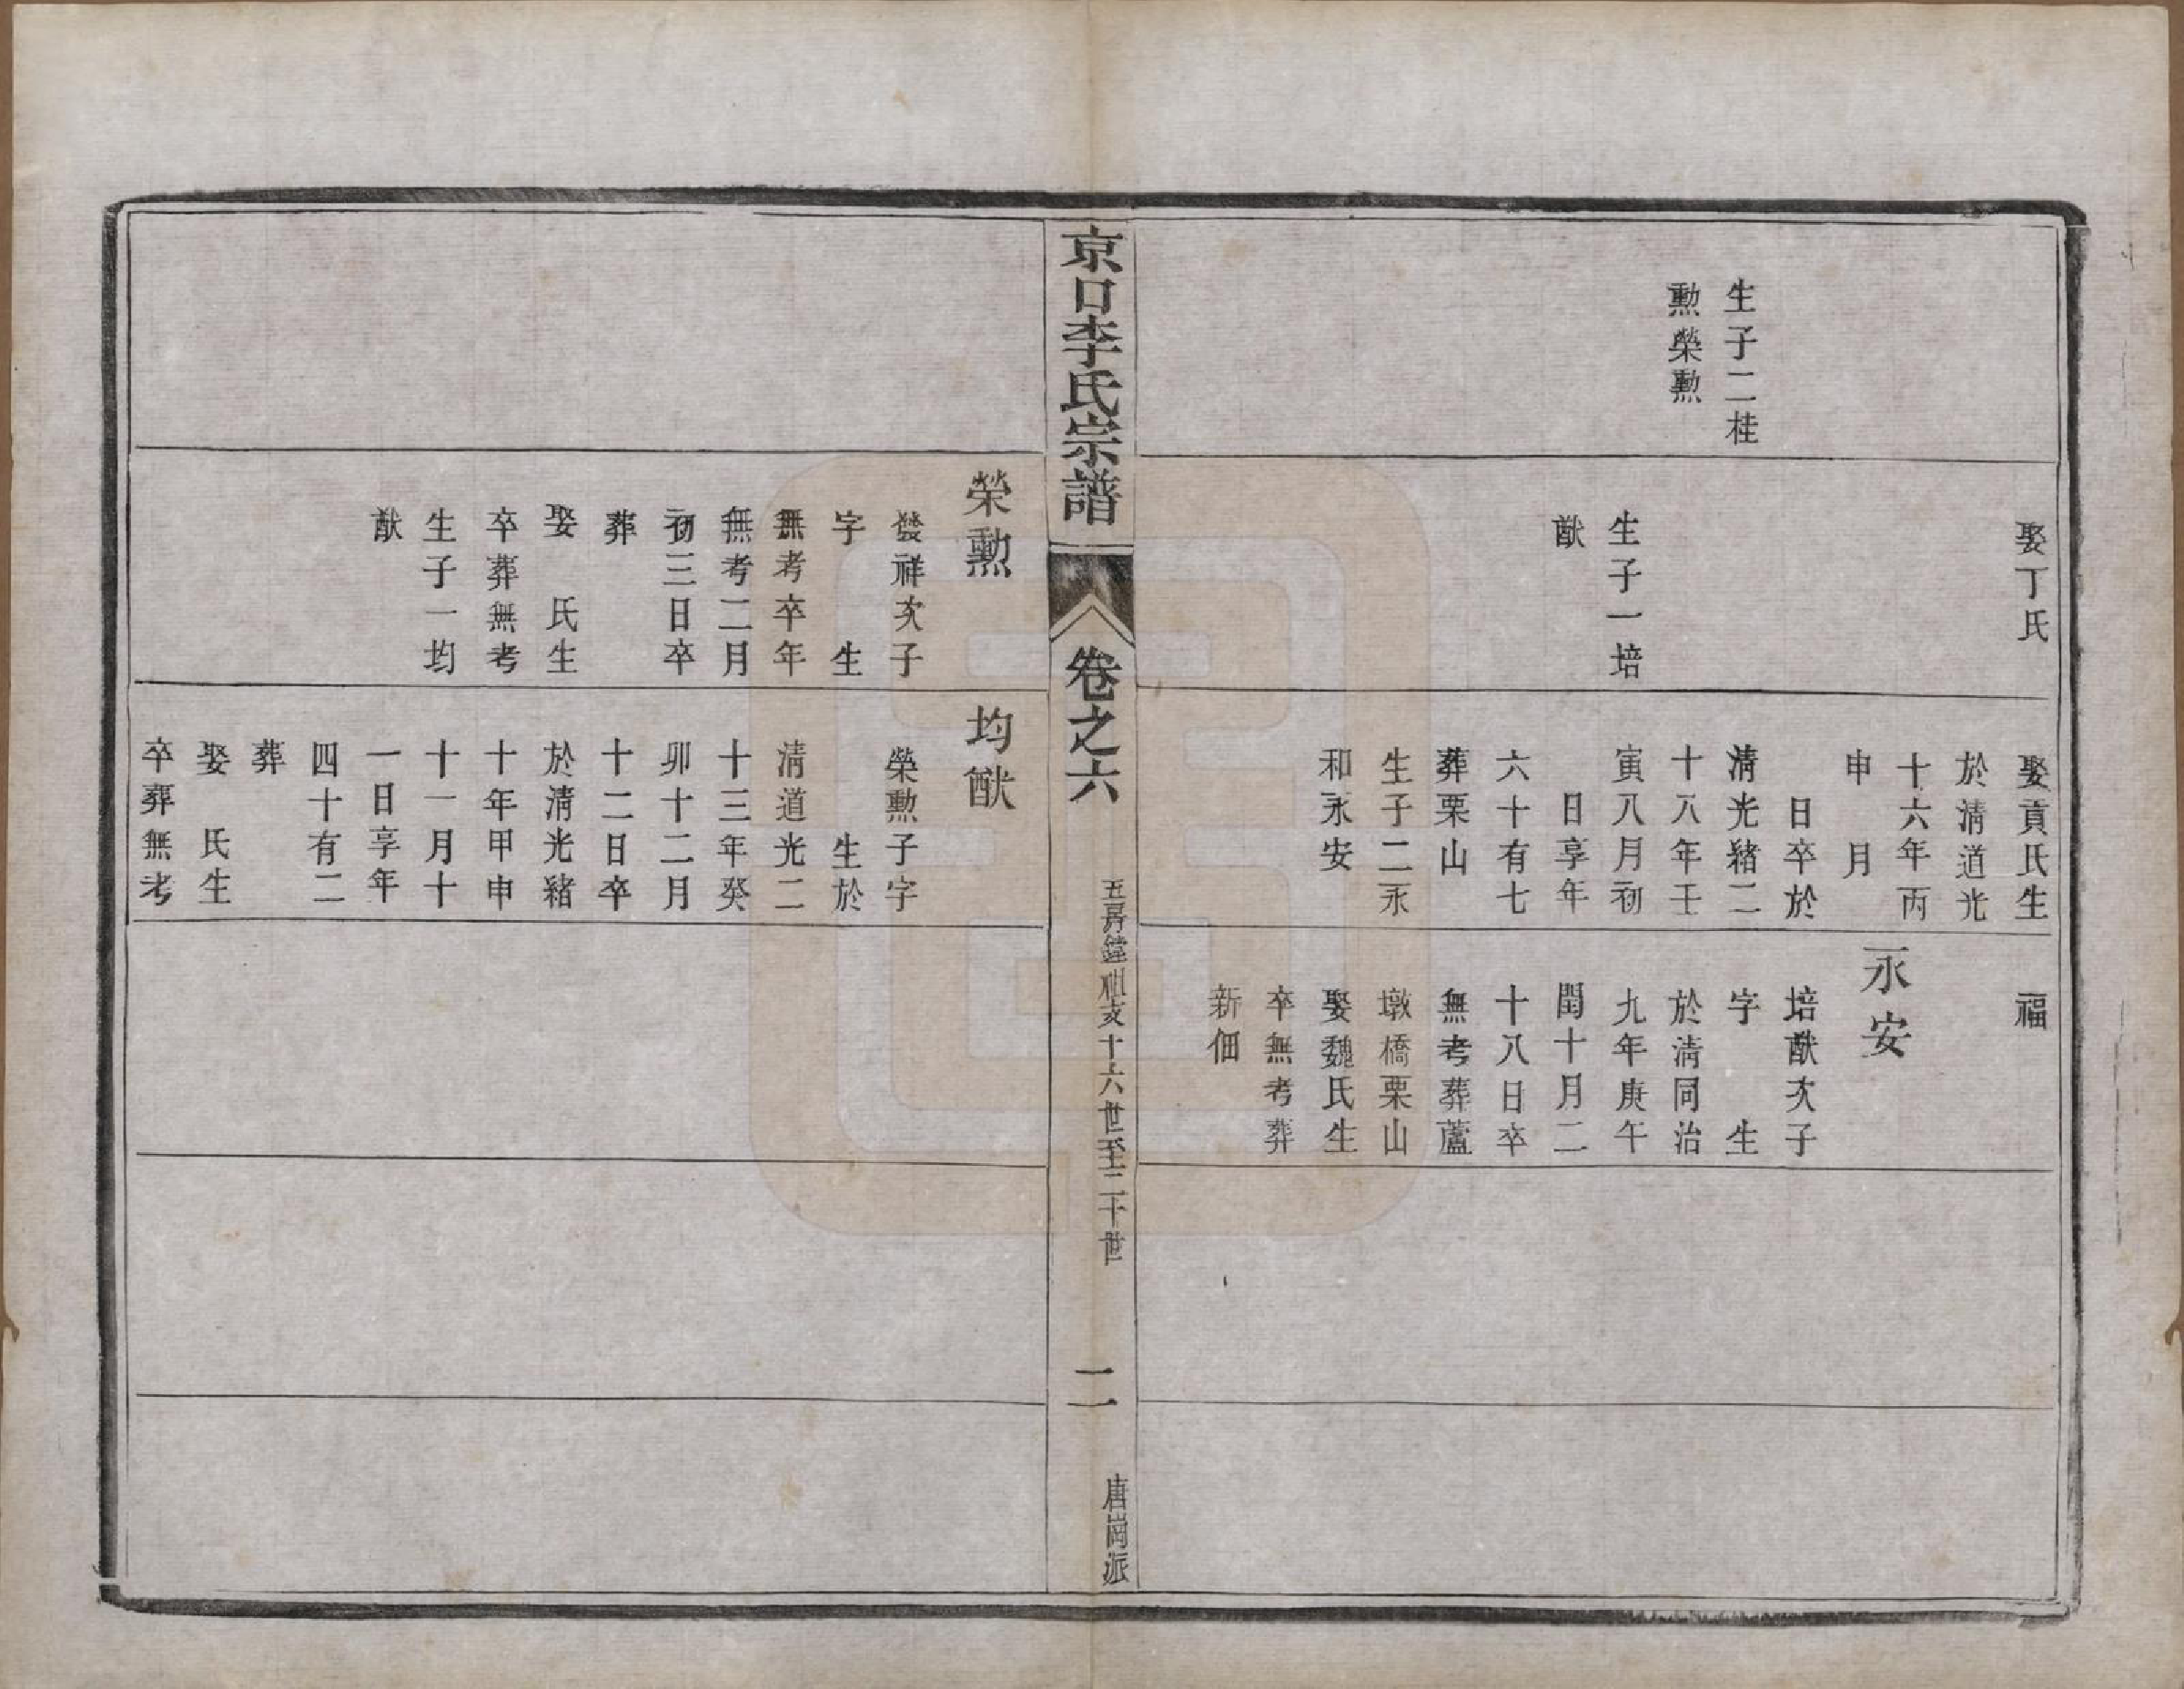 生子二桂
勲榮勲
娶丁氏
生子一培
猷
娶貢氏生
於淸道光
十六年丙
申　月
日卒於
淸光緒二
十八年壬
寅八月初
日享年
六十有七
葬栗山
生子二永
和永安
福
永安
培猷次子
字　生
於淸同治
九年庚午
閏十月二
十八日卒
無考葬蘆
墩橋栗山
娶魏氏生
卒無考葬
新佃
京口李氏宗譜
卷之六
五房鐘祖支十六世至二十世
二
唐崗派
榮勲
發祥次子
字　生
無考卒年
無考二月
初三日卒
葬
娶　氏生
卒葬無考
生子一均
猷
均猷
榮勲子字
生於
淸道光二
十三年癸
卯十二月
十二日卒
於淸光緒
十年甲申
十一月十
一日享年
四十有二
葬
娶　氏生
卒葬無考